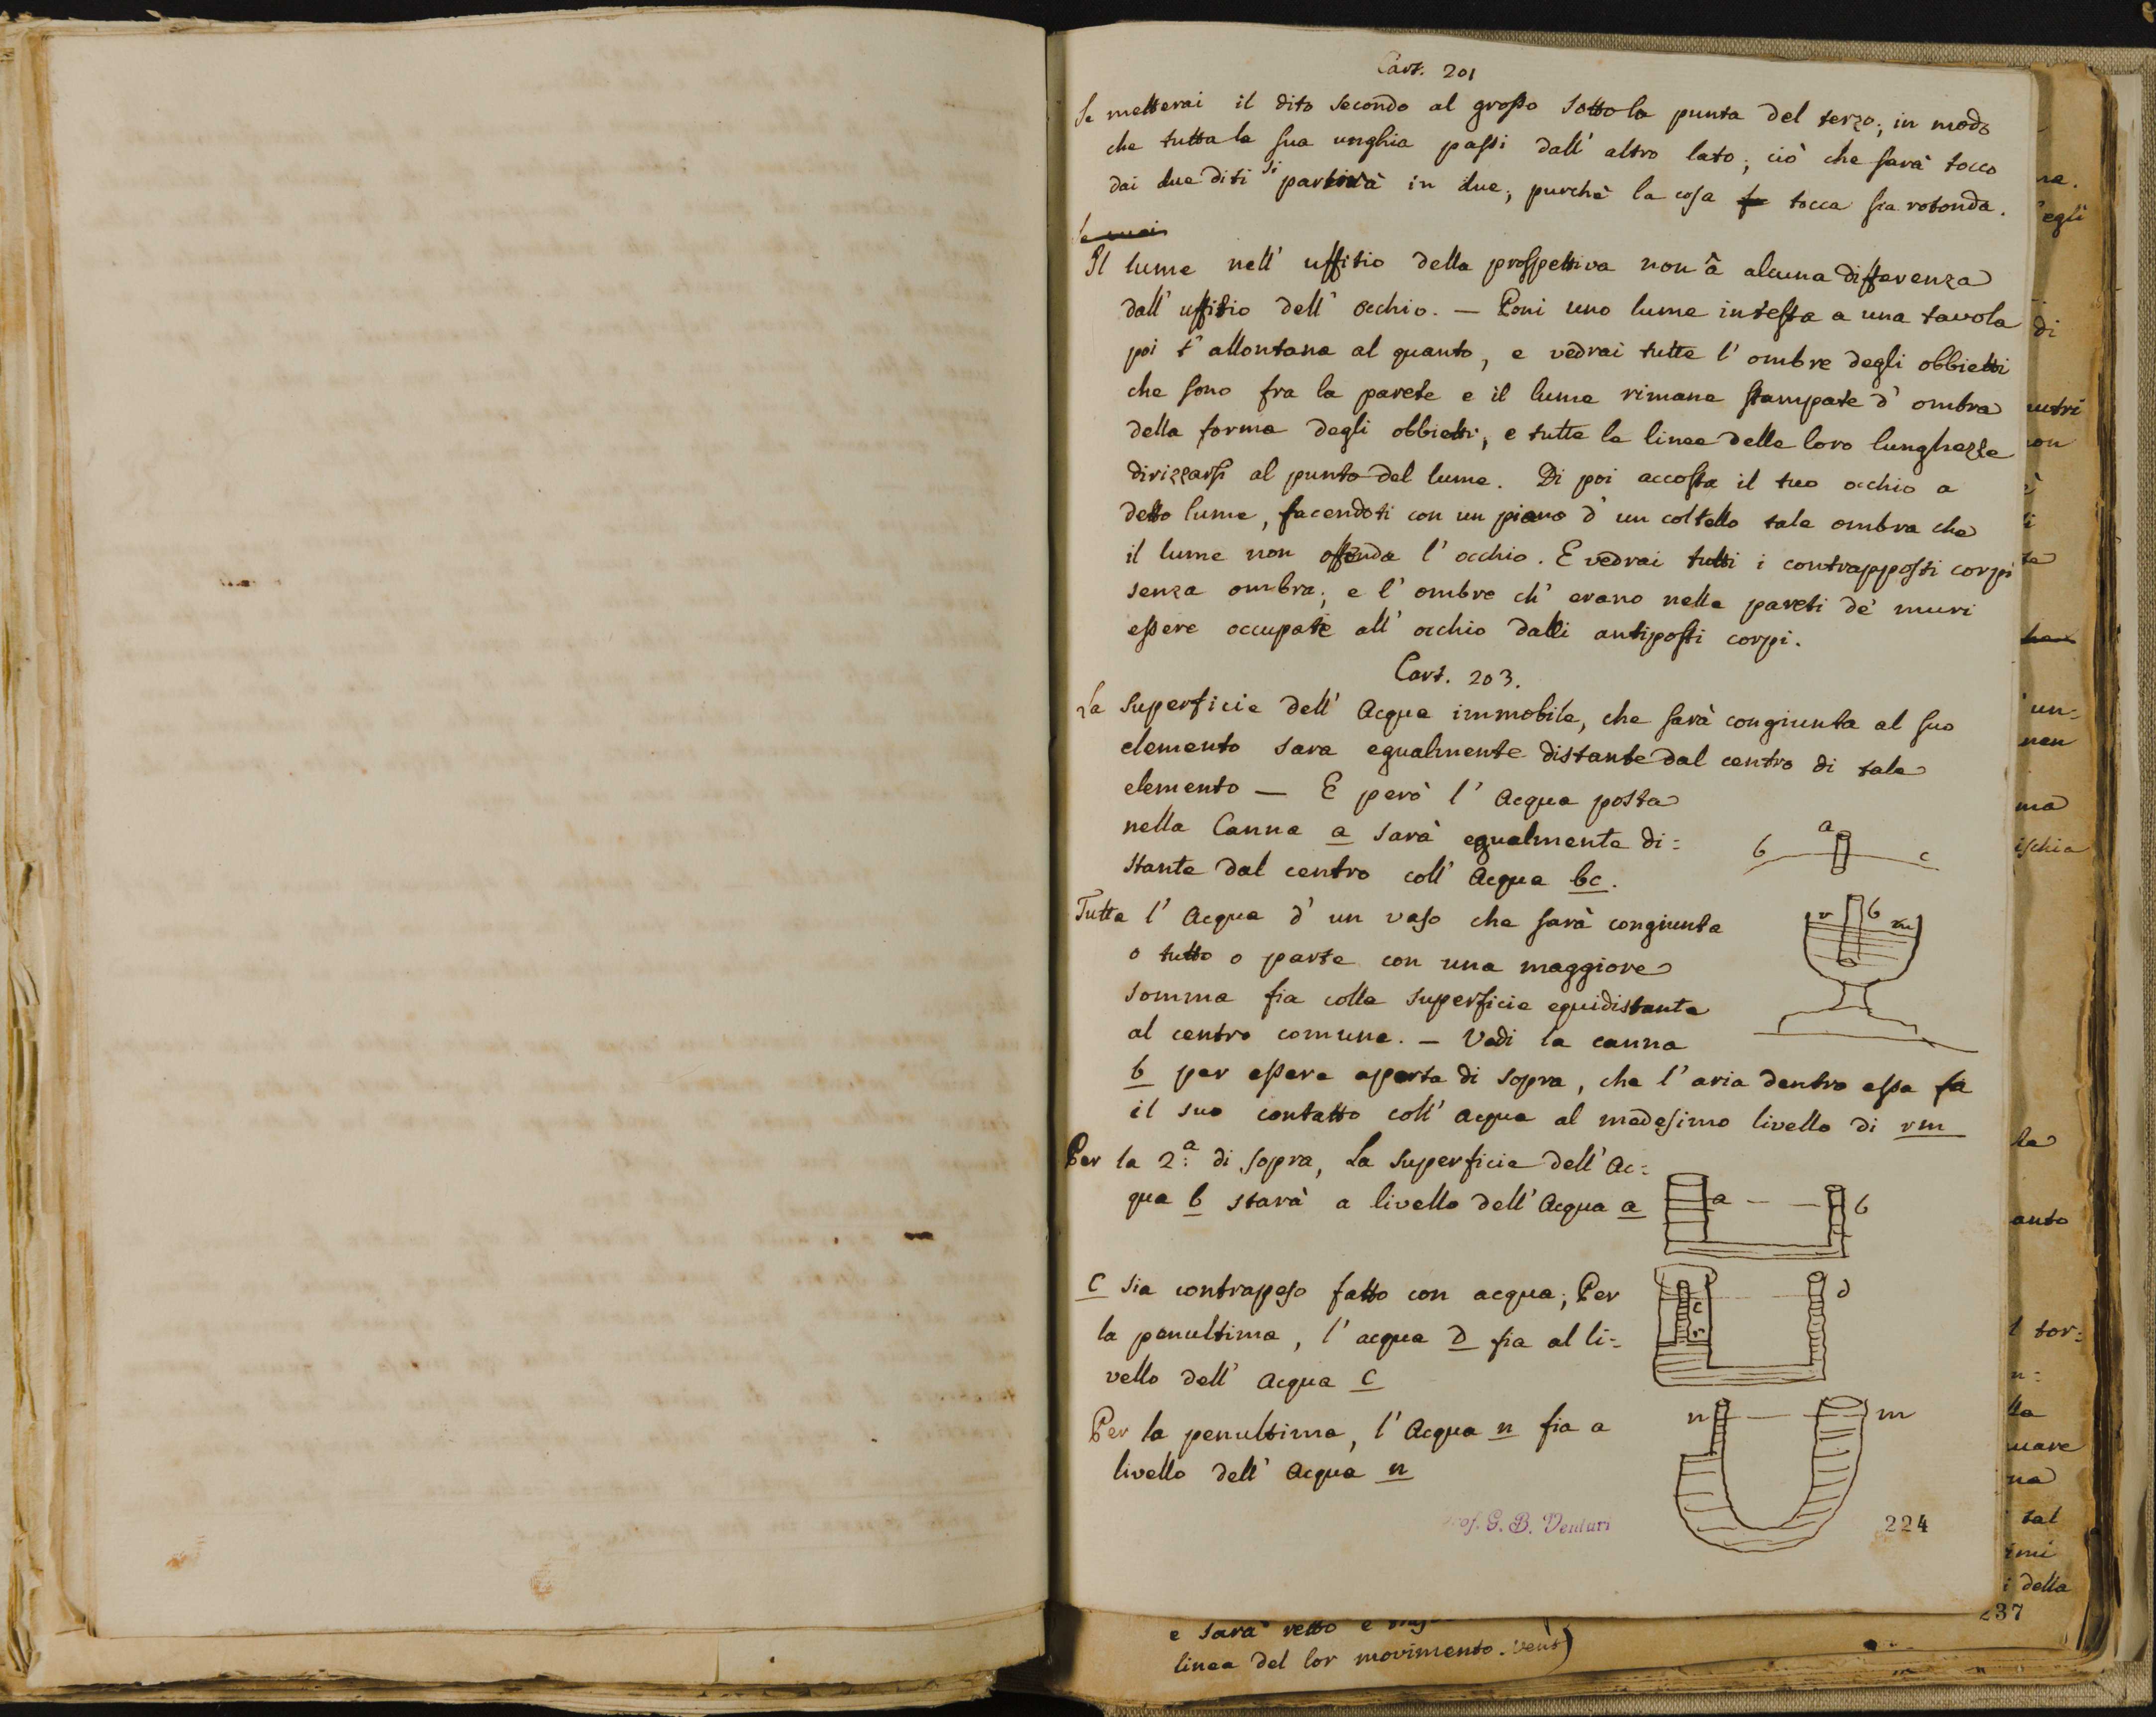 Cart. 201
Se metterai il dito secondo al grosso sotto la punta del terzo; in modo
che tutta la sua unghia passi dall' altro lato; ciò che sarà tocco
dai due diti si partirà in due; purchè la cosa tocca sia rotonda.
Il lume nell' uffitio della prospettiva non â alcuna differenza
dall' uffitio dell' occhio. — Poni uno lume in testa a una tavola
poi t' allontana al quanto, e vedrai tutte l' ombre degli obbietti
che sono fra la parete e il lume rimane stampate d' ombra
della forma degli obbietti, e tutte le linee delle loro lunghezze
dirizzarsi al punto del lume. Di poi accosta il tuo occhio a
detto lume, facendoti con un piano d' un coltello tale ombra che
il lume non offenda l' occhio. E vedrai tutti i contrapposti corpi
senza ombra; e l' ombre ch' erano nelle pareti de' muri
essere occupate all' occhio dalli antiposti corpi.
Cart. 203.
La Superficie dell' Acqua immobile, che sarà congiunta al suo
elemento sara egualmente distante dal centro di tale
elemento — E però l' Acqua posta
nella Canna a sarà egualmente di=
stante dal centro coll' Acqua bc.
b a c
Tutta l' Acqua d' un vaso che sarà congiunta
o tutto o parte con una maggiore
somma fia colla superficie equidistante
al centro comune. — Vedi la canna
b per essere aperta di sopra, che l' aria dentro essa fa
il suo contatto coll' acqua al medesimo livello di rm
r b m
Per la 2.a di sopra, La Superficie dell' Ac=
qua b starà a livello dell' Acqua a
a b
C sia contrapeso fatto con acqua; Per
la penultima, l' acqua D fia al li=
vello dell' Acqua C
c r d
Per la penultima, l' Acqua n fia a
livello dell' Acqua n
n m
Prof. G. B. Venturi
224
e sarà retto e
linea del lor movimento. Vent)
237
egli
di
utri
non
un=
nen
ma
ischia
anto
l tor=
n=
uare
na
tal
imi
i della